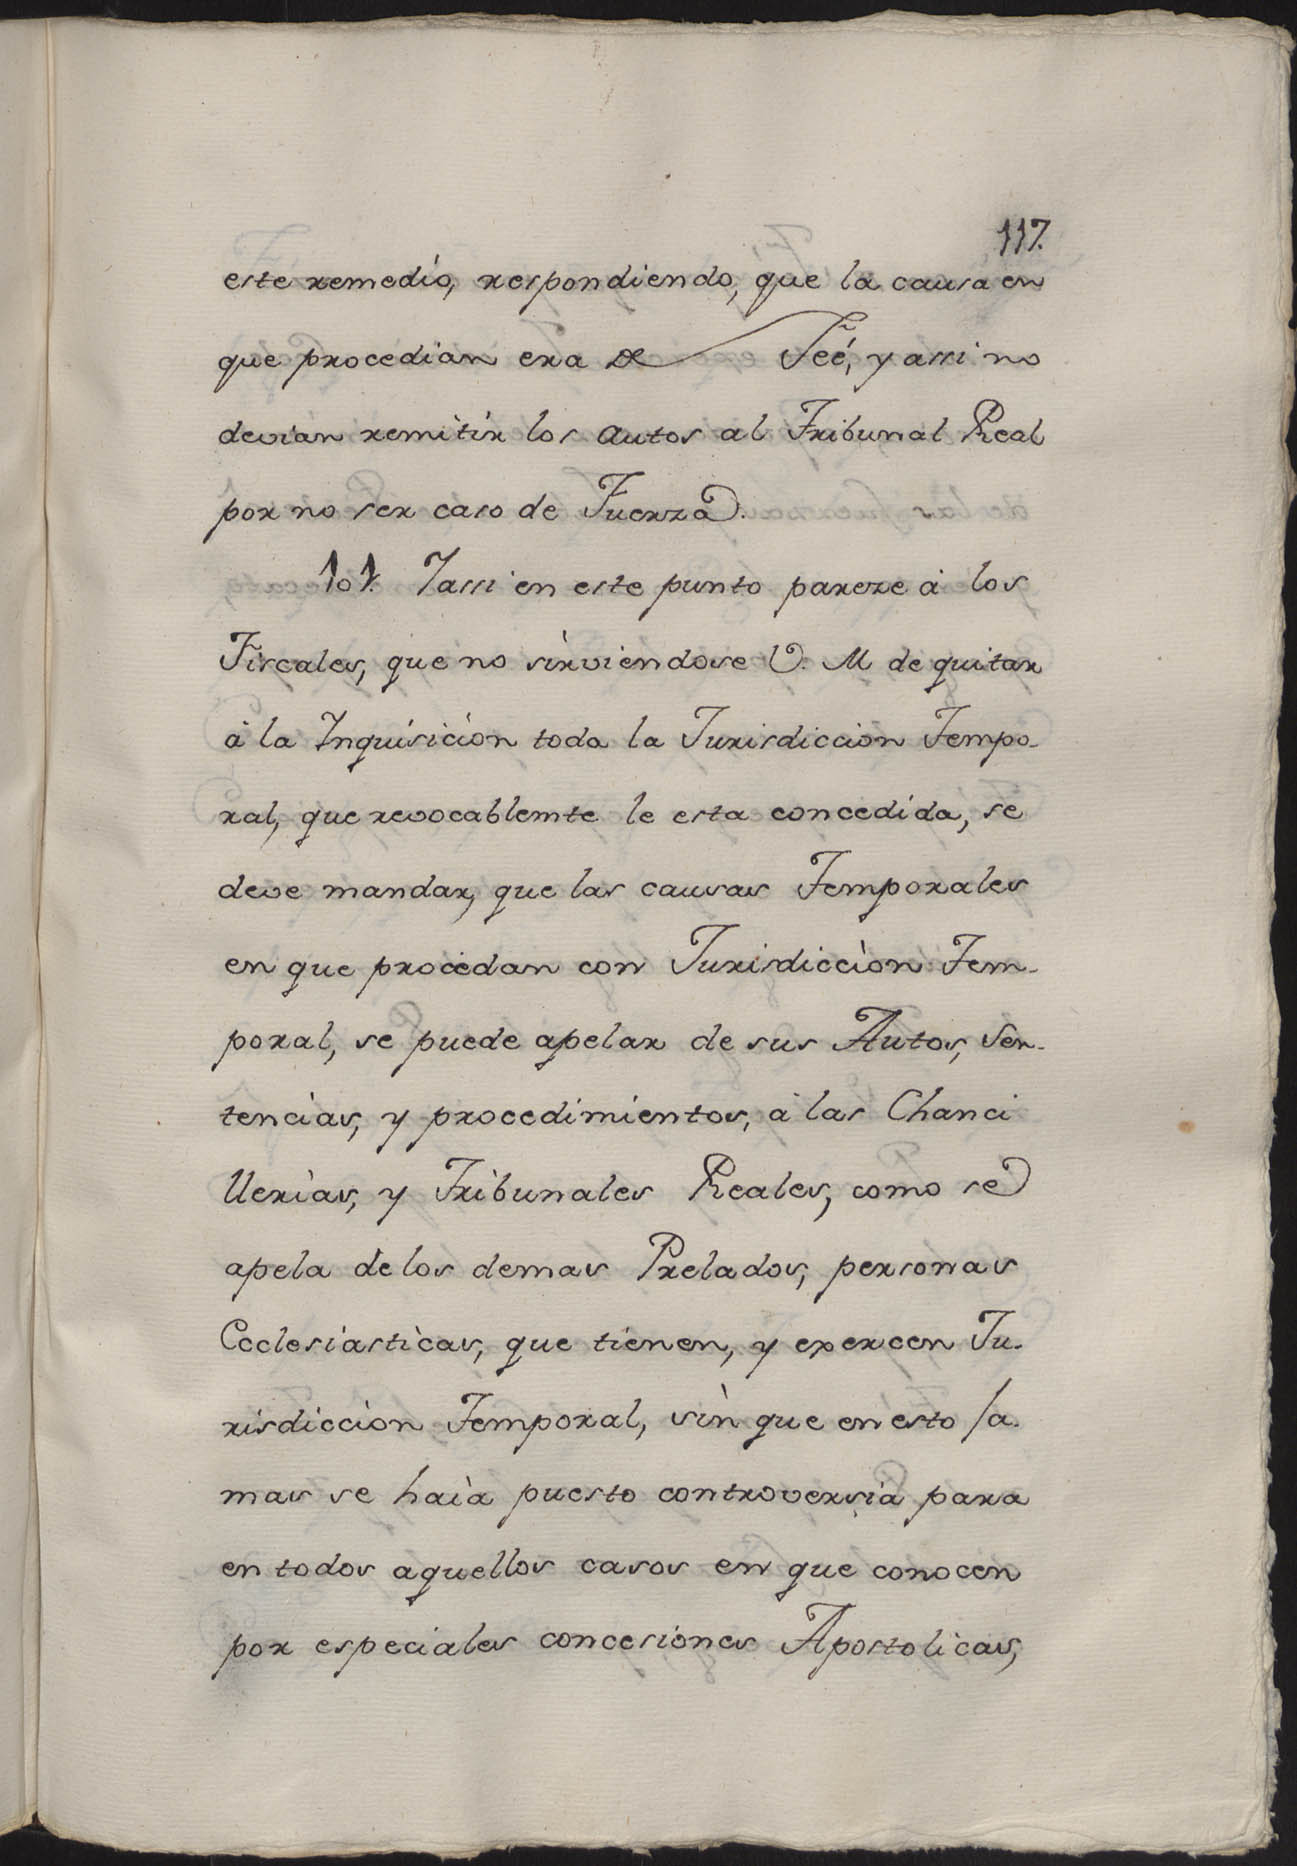 117.
este remedio, respondiendo, que la causa en
que procedian era de Feé, y assi no
devian remitir los autos al Tribunal Real
por no ser caso de Fuerza.
101. Yassi en este punto pareze á los
Fiscales, que no sirviendose V. M de quitar
á la Inquisicion toda la Jurisdiccion Tempo-
ral, que revocablemte le esta concedida, se
deve mandar, que las causas Temporales
en que procedan con Jurisdiccion Tem-
poral, se puede apelar de sus Autos, Sen-
tencias, y procedimientos, á las Chanci
llerias, y Tribunales Reales, como se
apela de los demas Prelados, personas
Ecclesiasticas, que tienen, y exercen Ju-
risdiccion Temporal, sin que en esto ja-
mas se haia puesto controversia para
en todos aquellos casos en que conocen
por especiales concesiones Apostolicas,